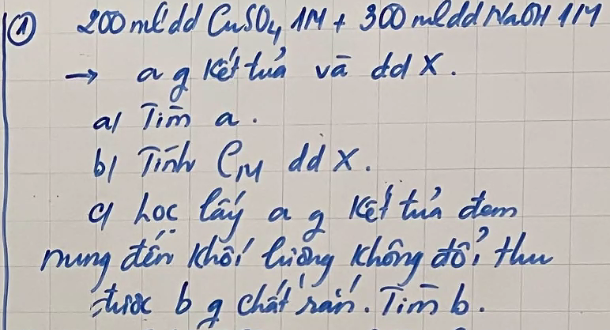 ① 200ml dd CuSO4 1M + 300ml dd NaOH 1M
→ a g kết tủa và dd X.
a/ Tìm a.
b/ Tính CM dd X.
c/ Lọc lấy a g kết tủa đem
nung đến khối lượng không đổi thu
được b g chất rắn. Tìm b.